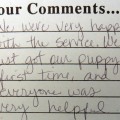 our Comments...
We were very happy
with the service. We
just got our puppy
first time, and
everyone was
very helpful